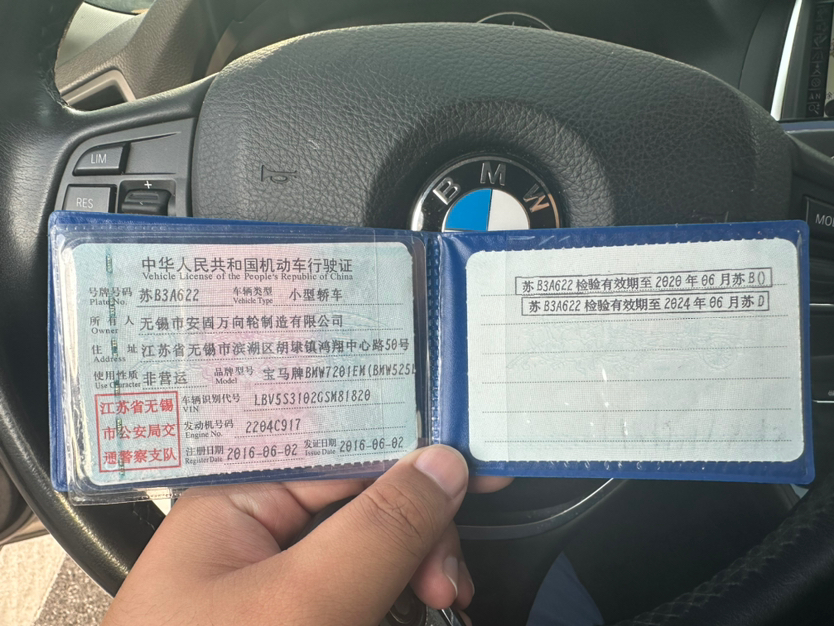 LIM
+
RES
BMW
MO
中华人民共和国机动车行驶证
Vehicle License of the People's Republic of China
号牌号码 苏B3A622 车辆类型 小型轿车
Plate No. Vehicle Type
所有人 无锡市安固万向轮制造有限公司
Owner
住址 江苏省无锡市滨湖区胡埭镇鸿翔中心路50号
Address
使用性质 非营运 品牌型号 宝马牌BMW7201EM(BMW525L
Use Character Model
江苏省无锡
市公安局交
通警察支队
车辆识别代号 LBV5S3102GSM81820
VIN
发动机号码 2204C917
Engine No.
注册日期 2016-06-02 发证日期 2016-06-02
Register Date Issue Date
苏B3A622 检验有效期至 2020 年 06 月苏 B()
苏 B3A622 检验有效期至 2024 年 06 月苏 D